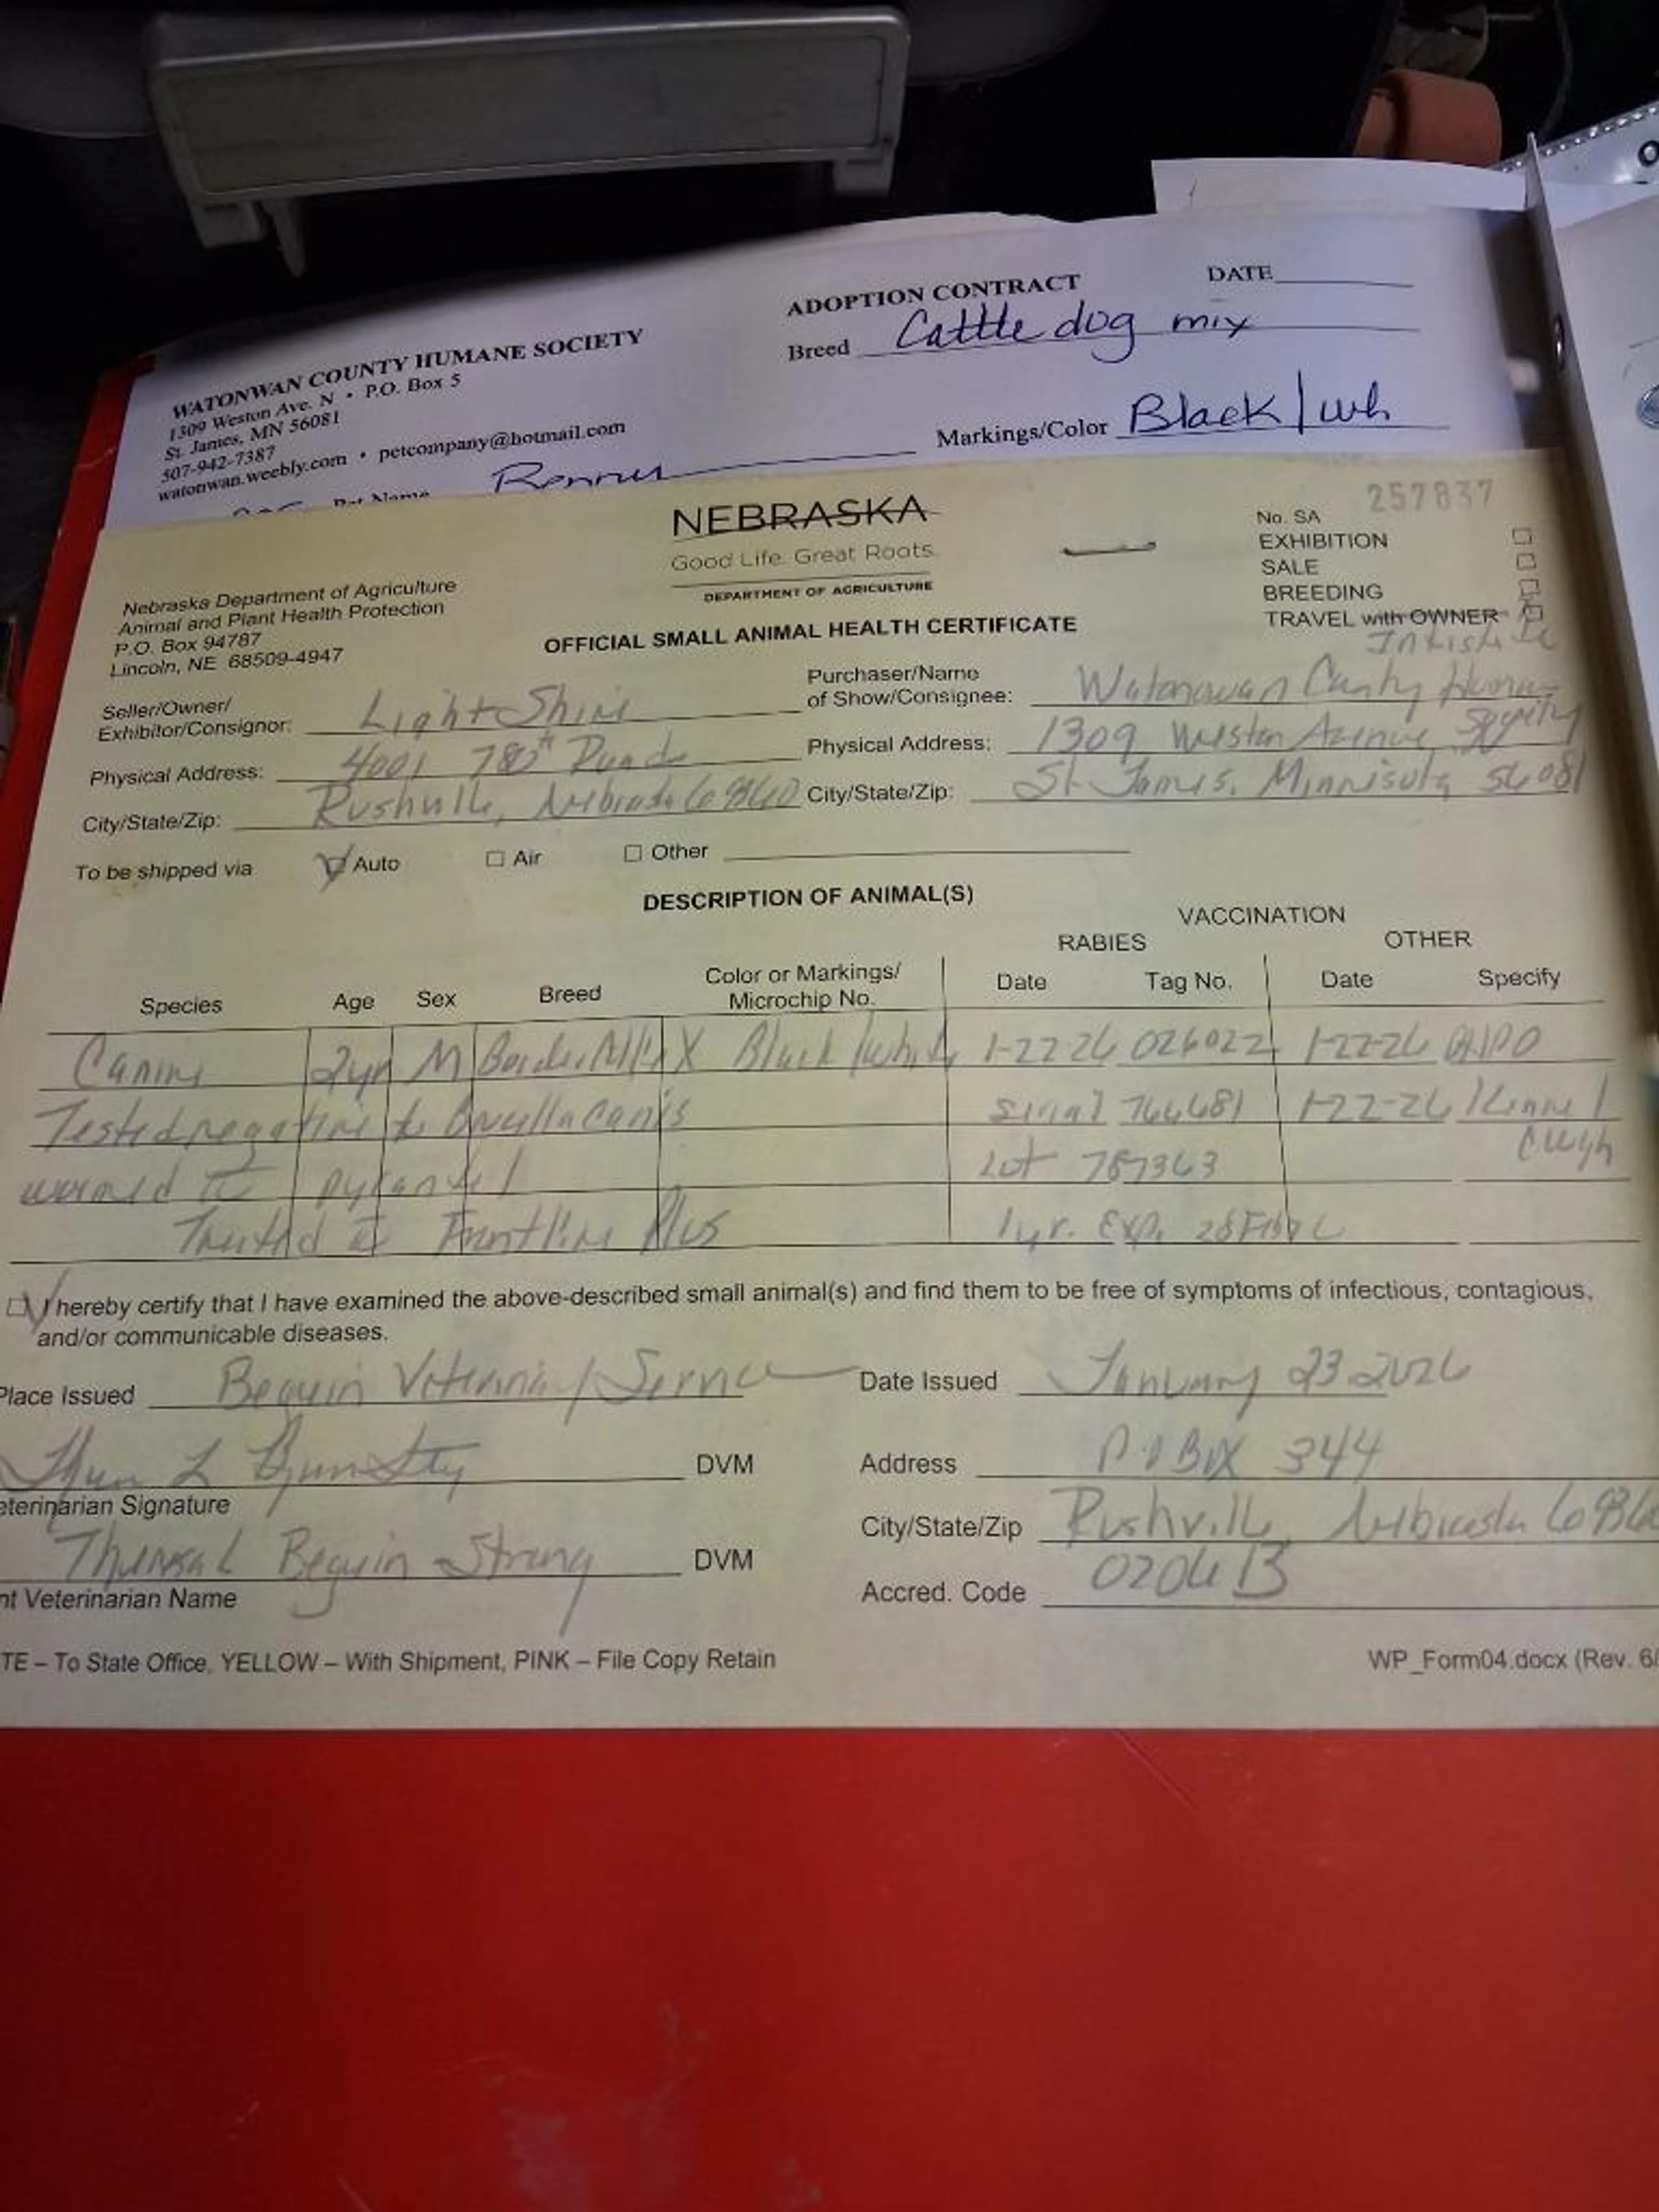 ADOPTION CONTRACT DATE
WATONWAN COUNTY HUMANE SOCIETY
1309 Weston Ave. N • P.O. Box 5
St. James, MN 56081
507-942-7387
watonwan.weebly.com • petcompany@hotmail.com
Breed Cattle dog mix
Markings/Color Black/wh
Pet Name
257837
NEBRASKA
Good Life. Great Roots.
DEPARTMENT OF AGRICULTURE
No. SA
EXHIBITION
SALE
BREEDING
TRAVEL with OWNER
Nebraska Department of Agriculture
Animal and Plant Health Protection
P.O. Box 94787
Lincoln, NE 68509-4947
OFFICIAL SMALL ANIMAL HEALTH CERTIFICATE
Seller/Owner/
Exhibitor/Consignor: Light Shine
Physical Address: 4001 780th Road
City/State/Zip: Rushville, Nebraska 69360
Purchaser/Name
of Show/Consignee: Watonwan County Humane Society
Physical Address: 1309 Weston Avenue
City/State/Zip: St. James, Minnisota 56081
To be shipped via Auto Air Other
DESCRIPTION OF ANIMAL(S)
VACCINATION
RABIES OTHER
Species Age Sex Breed Color or Markings/ Date Tag No. Date Specify
Microchip No.
Canine 2yr M Border Collie X Black/White 1-22-26 026022 1-22-26
Tested negative to Brucella Canis serial 766681 1-22-26 Kennel
Cough
wormed c pyrantel Lot 787363
Treated c Frontline Plus 1yr. Exp.
I hereby certify that I have examined the above-described small animal(s) and find them to be free of symptoms of infectious, contagious,
and/or communicable diseases.
Place Issued Beguin Veterinary Service Date Issued January 23 2026
DVM Address P.O Box 344
eterinarian Signature
City/State/Zip Rushville, Nebraska 6936
Theresa L Beguin Strang DVM
nt Veterinarian Name
Accred. Code 0204B
TE – To State Office, YELLOW – With Shipment, PINK – File Copy Retain WP_Form04.docx (Rev. 6/